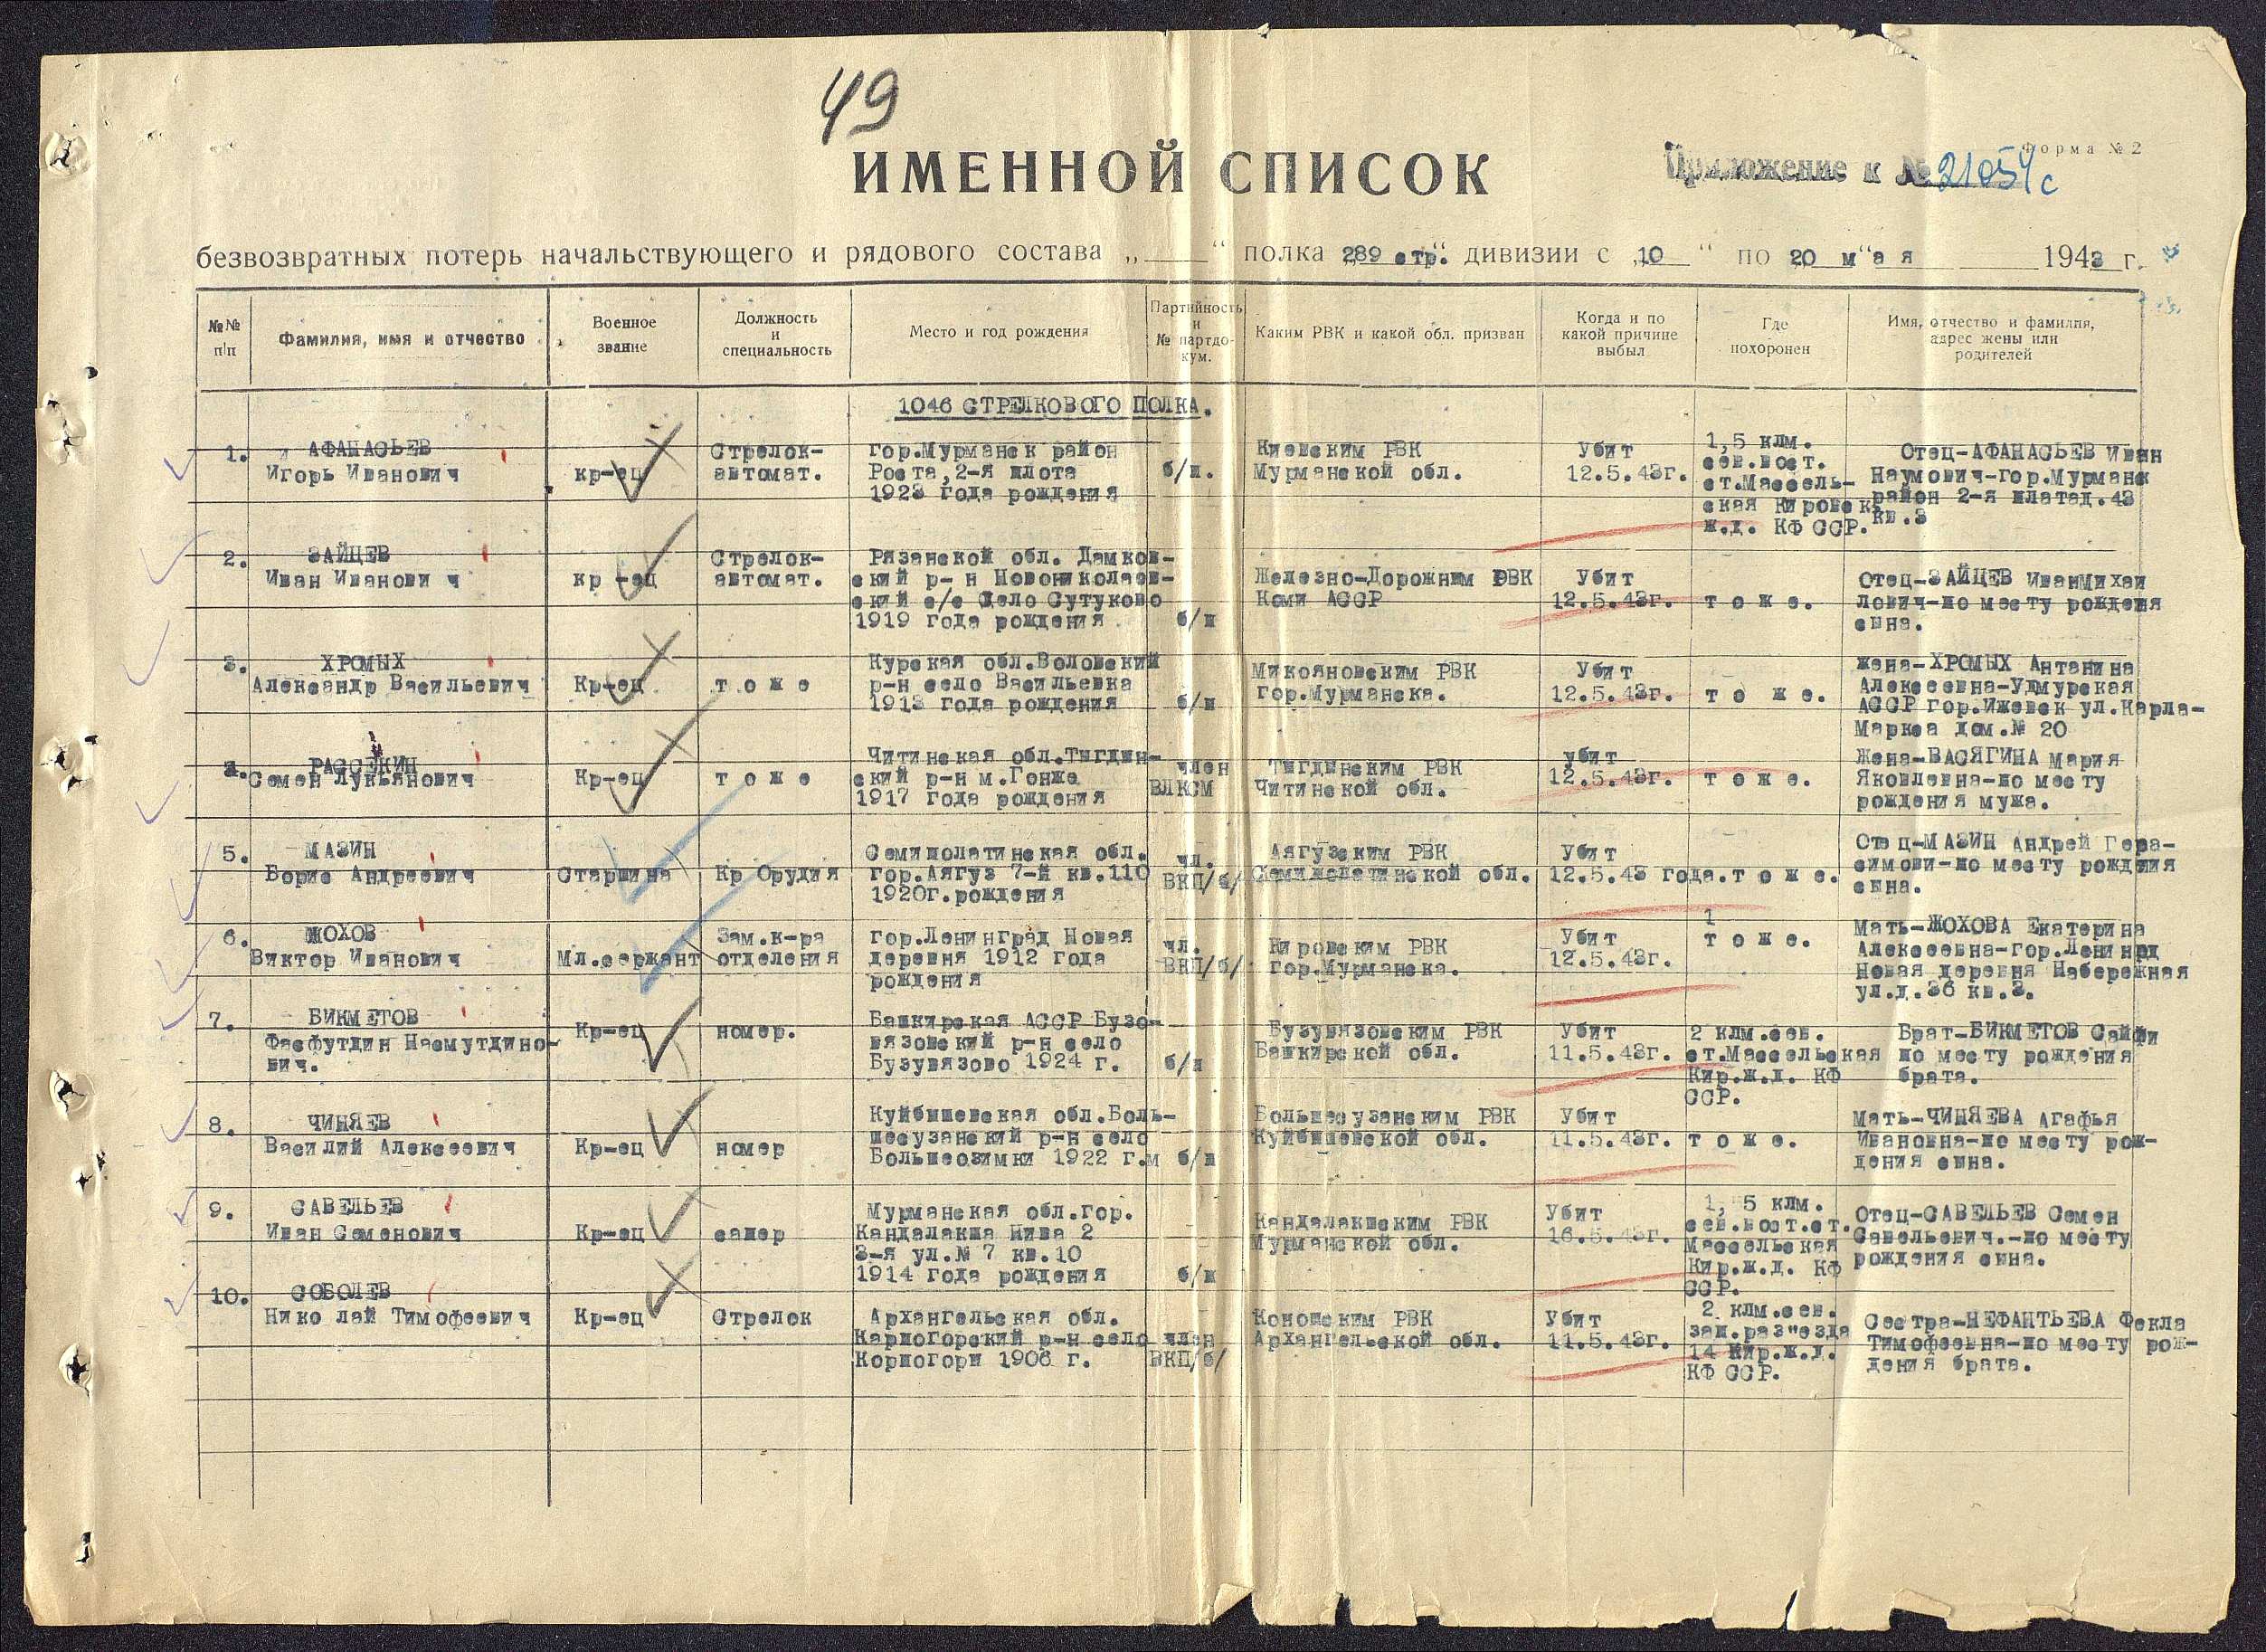 49
ИМЕННОЙ СПИСОК
Приложение к № 21054с
Форма № 2
безвозвратных потерь начальствующего и рядового состава „ “ полка 289 стр. дивизии с „10 “ по 20 м“а я 1943 г.
№№ п/п
Фамилия, имя и отчество
Военное звание
Должность и специальность
Место и год рождения
Партийность и № партдокум.
Каким РВК и какой обл. призван
Когда и по какой причине выбыл
Где похоронен
Имя, отчество и фамилия, адрес жены или родителей
1046 СТРЕЛКОВОГО ПОЛКА.
1.
АФАНАСЬЕВ
Игорь Иванович
кр-ец
Стрелок-
автомат.
гор.Мурманск район
Роста,2-я плота
1923 года рождения
б/п.
Мурманской обл.
Убит
12.5.43г.
1,5 клм.
сев.вост.
ст.Массель-
ская Кировск.
ж.д. КФ ССР.
Отец-АФАНАСЬЕВ Иван
Наумович-гор.Мурманск
район 2-я платад.43
кв.3
2.
ЗАЙЦЕВ
Иван Иванови ч
кр -ец
Стрелок-
автомат.
Рязанской обл. Дамков-
ский р- н Новониколаев-
ский с/с Село Сутуково
1919 года рождения
б/п
Железно-Дорожным РВК
Коми АССР
Убит
12.5.43г.
т о ж е.
Отец-ЗАЙЦЕВ ИванМихай
лович-по месту рождения
сына.
3.
ХРОМЫХ
Александр Васильевич
Кр-ец
т о ж е
Курская обл.Воловский
р-н село Васильевка
1913 года рождения
б/п
Микояновским РВК
гор.Мурманска.
Убит
12.5.43г.
т о ж е.
жена-ХРОМЫХ Антанина
Алексеевна-Удмурская
АССР гор.Ижевск ул.Карла-
Маркса дом.№ 20
4.
РАССЕКИН
Семен Лукьянович
Кр-ец
т о ж е
Читинская обл.Тыгдин-
ский р-н м.Гонжа
1917 года рождения
член
ВЛКСМ
Тыгдинским РВК
Читинской обл.
убит
12.5.43г.
т о ж е.
Жена-ВАСЯГИНА Мария
Яковлевна-по месту
рождения мужа.
5.
МАЗИН
Борис Андреевич
Старшина
Кр Орудия
Семиполатинская обл.
гор.Аягуз 7-й кв.110
1920г.рождения
чл.
ВКП/б/
Аягузским РВК
Семиполатинской обл.
Убит
12.5.43 года.
т о ж е.
Отец-МАЗИН Андрей Гера-
симови-по месту рождения
сына.
6.
ЖОХОВ
Виктор Иванович
Мл.сержант
Зам.к-ра
отделения
гор.Ленинград Новая
деревня 1912 года
рождения
чл.
ВКП/б/
Кировским РВК
гор.Мурманска.
Убит
12.5.43г.
1
т о ж е.
Мать-ЖОХОВА Екатерина
Алексеевна-гор.Ленинрд
Новая деревня Набережная
ул.д.36 кв.3.
7.
БИКМЕТОВ
Фасфутдин Насмутдино-
вич.
Кр-ец
номер.
Башкирская АССР Бузо-
вязовский р-н село
Бузувязово 1924 г.
б/п
Бузувязовским РВК
Башкирской обл.
Убит
11.5.43г.
2 клм.сев.
ст.Массельская
Кир.ж.д. КФ
ССР.
Брат-БИКМЕТОВ Сайфи
по месту рождения
брата.
8.
ЧИНЯЕВ
Василий Алексеевич
Кр-ец
номер
Куйбышевская обл.Боль-
шесузанский р-н село
Большеозимки 1922 г.м
б/п
Большесузанским РВК
Куйбышевской обл.
Убит
11.5.43г.
т о ж е.
Мать-ЧИНЯЕВА Агафья
Ивановна-по месту рож-
дения сына.
9.
САВЕЛЬЕВ
Иван Семенович
Кр-ец
сапер
Мурманская обл.гор.
Кандалакша Нива 2
3-я ул.№ 7 кв.10
1914 года рождения
б/п
Кандалакшским РВК
Мурманской обл.
Убит
16.5.43г.
1, 5 клм.
сев.вост.ст.
Массельская
Кир.ж.д. КФ
ССР.
Отец-САВЕЛЬЕВ Семен
Савельевич.-по месту
рождения сына.
10.
СОБОЛЕВ
Николай Тимофеевич
Кр-ец
Стрелок
Архангельская обл.
Карпогорский р-н село
Корпогори 1906 г.
член
ВКП/б/
Коношским РВК
Архангельской обл.
Убит
11.5.43г.
2 клм.сев.
зап.раз"езда
14 Кир.ж.д.
КФ ССР.
Сестра-НЕФАНТЬЕВА Фекла
Тимофеевна-по месту рож-
дения брата.